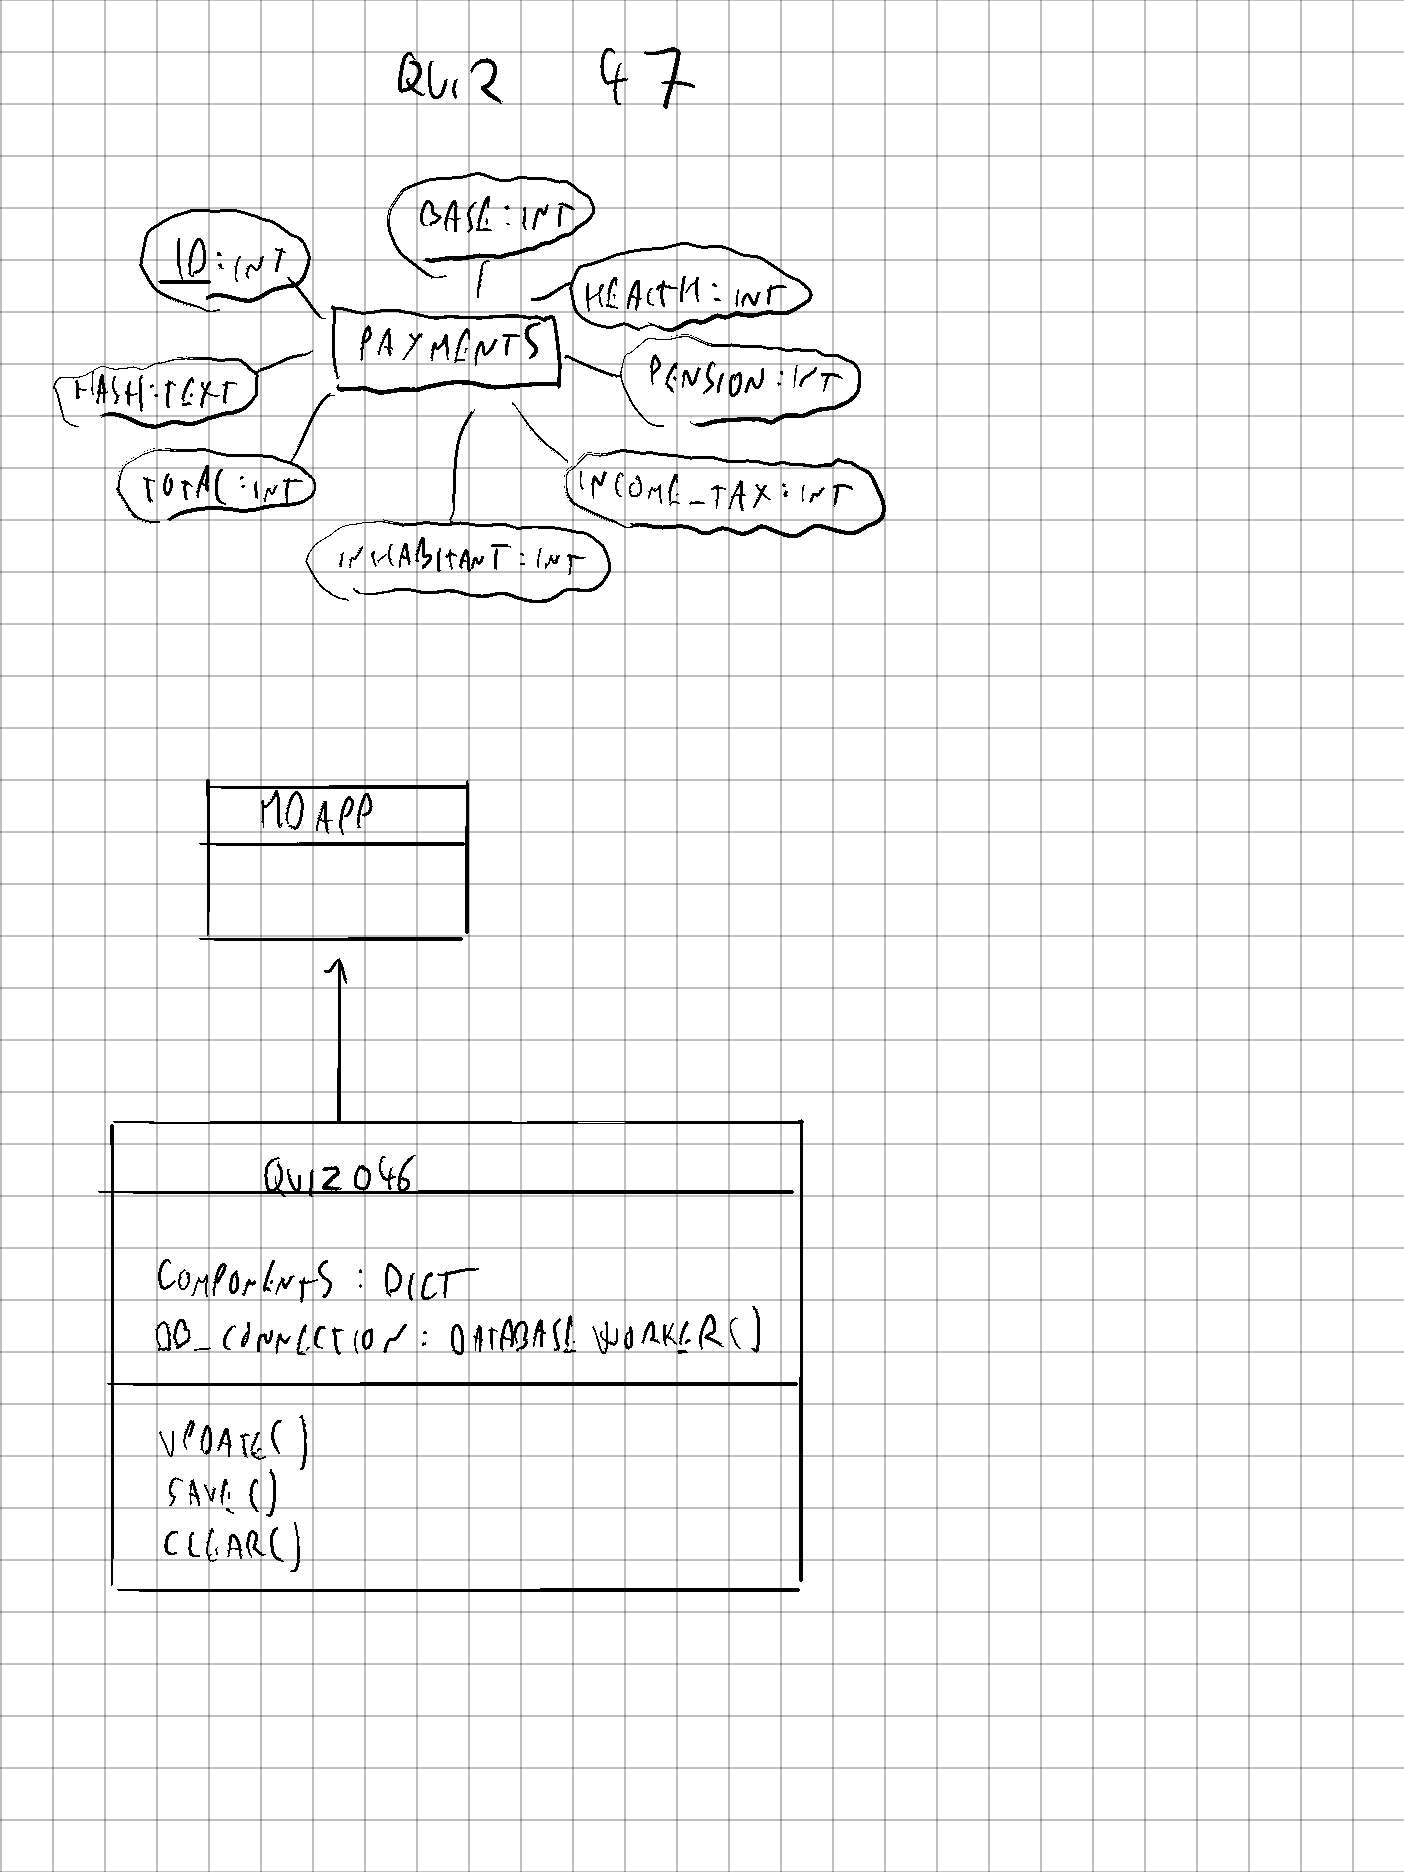 QUIZ 47
BASE:INT
ID:INT
HEALTH:INT
PAYMENTS
PENSION:INT
HASH:TEXT
TOTAL:INT
INCOME_TAX:INT
INHABITANT:INT
MDAPP
QUIZ046
COMPONENTS:DICT
DB_CONNECTION:DATABASE WORKER()
UPDATE()
SAVE()
CLEAR()